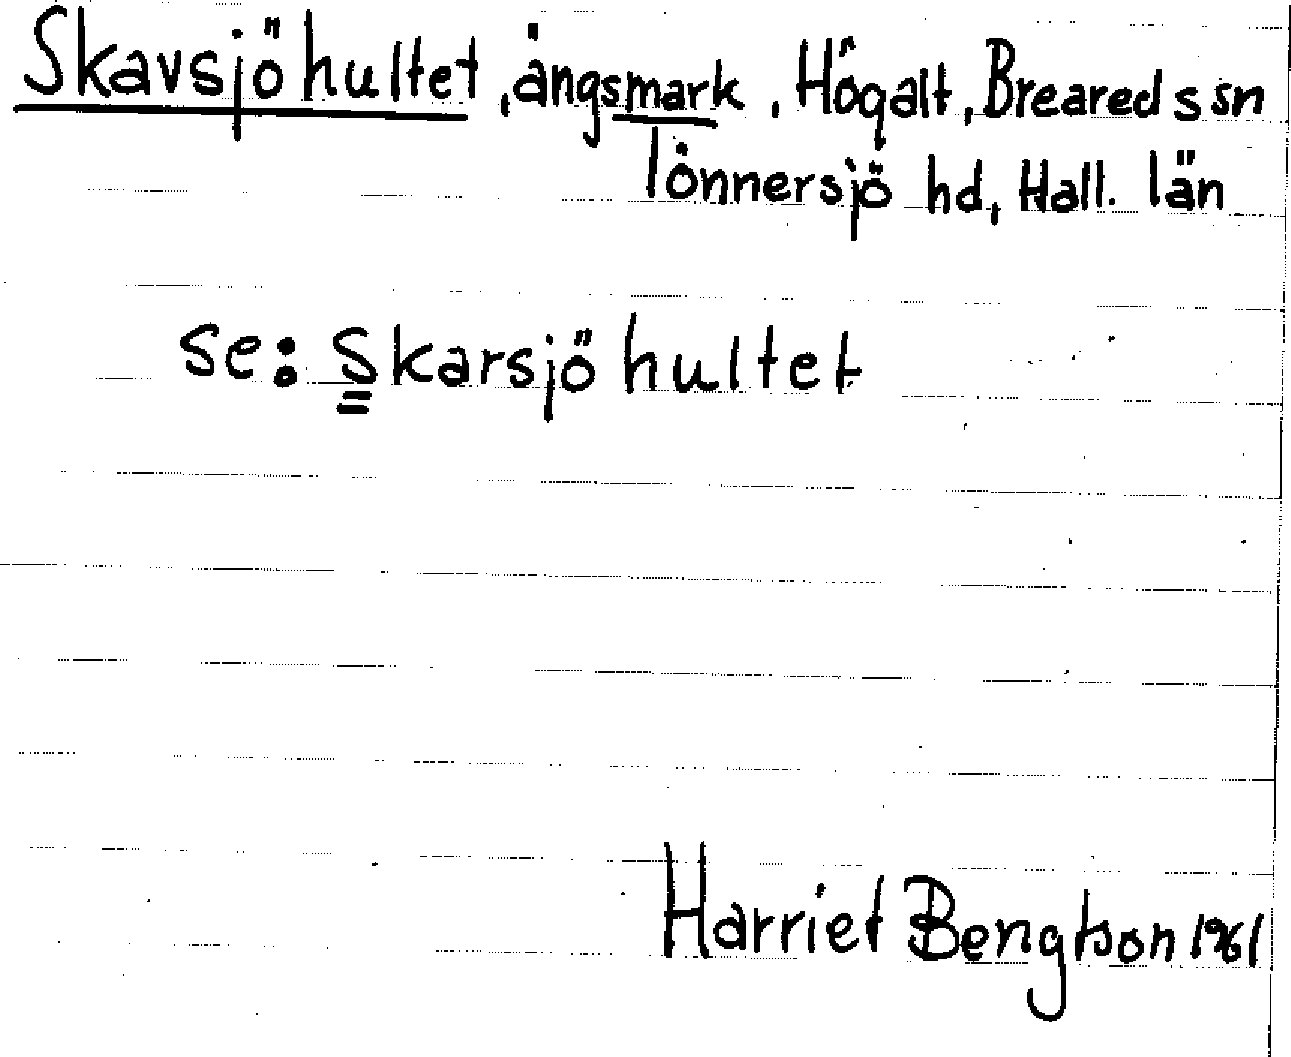 Skavsjöhultet, ängsmark, Högalt, Breareds sn
Tönnersjö hd, Hall. län
se: Skarsjöhultet
Harriet Bengtson 1961